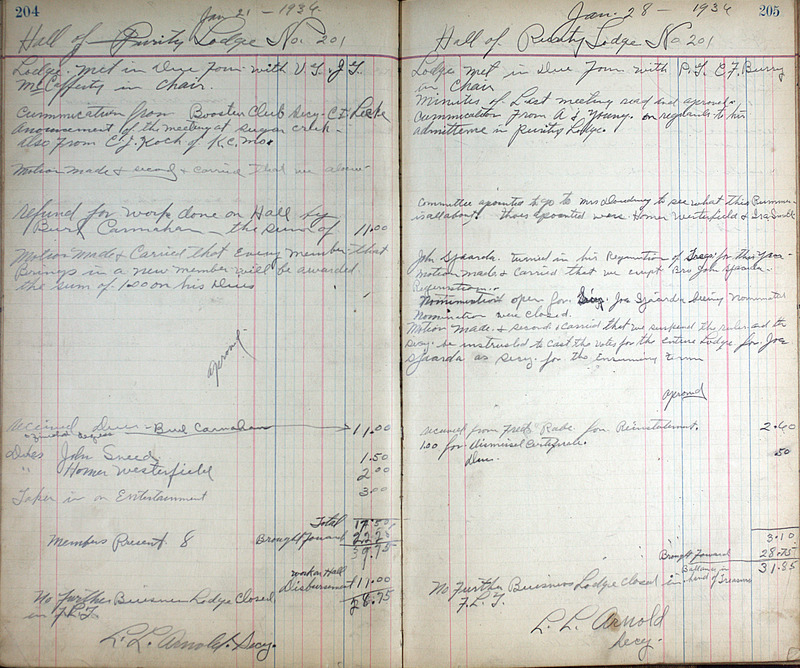 204
Jan 21 - 1934
Hall of Purity Lodge No. 201
Lodge met in Due Form with V.T. J.T.
McCafferty in Chair.
Cummunication from Booster Club Secy. C.F.
anouncement of the meeting at sugar creek -
also from C.J. Koch of K.C. Mo.
Motion made & second & carried that we alow -
refund for work done on Hall by
Burl Carnahan - the sum of 11.00
Motion Made & Carried that Every member that
Brings in a new member will be awarded
the sum of 1.00 on his Dues
aproved
received Dues - Burl Carnahan 11.00
Dues John Sneed 1.50
" Homer Westerfield 2.00
Taken in on Entertainment 3.00
Total 17.50
Members Present 8 Brought Forward 22.25
39.75
work on Hall
Disbursement 11.00
28.75
No Further Buisness Lodge Closed
in F.L.T.
L. L. Arnold. Secy.
205
Jan. 28 - 1934
Hall of Purity Lodge No. 201
Lodge met in Due Form with P.T. C.F. Berry
in Chair
Minutes of Last meeting read and aproved.
Cummunication From A. J. Young. on regards to his
admittence in Purity Lodge.
Committee apointed to go to Mrs to see what this
is all about. thoes apointed were Homer Westerfield & Ira Sneed
John Sjaarda. turned in his Resignation of for this Year
motion made & carried that we exept Bro John Sjaarda -
Resignation.
Nomination open for Secy. Joe Sjaarda being nominated
Nomination were closed.
Motion Made. & second & carried that we suspend the rules and the
Secy. be instructed to cast the votes for the entire Lodge for Joe
Sjaarda as Secy. for the ensuning term
aproved
received from Fred Rabe for Reinstatement. 2.60
1.00 for dismissel certificate.
Due. .50
3.10
Brought Forward 28.75
Ballance in 31.85
hand of Treasure
No Further Buisness Lodge Closed in
F.L.T.
L. L. Arnold
Secy.